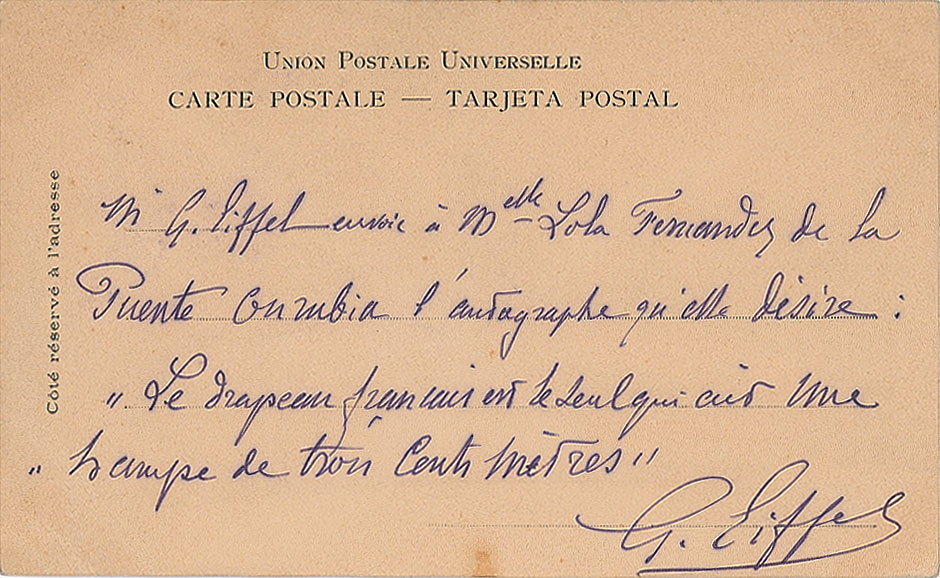 Union Postale Universelle
CARTE POSTALE — TARJETA POSTAL
Côté réservé à l'adresse
Mr G. Eiffel envoie à Melle Lola Fernandez de la
Puente l'autographe qu'elle désire :
" Le drapeau français est le seul qui ait une
" hampe de trois cents mètres "
G. Eiffel